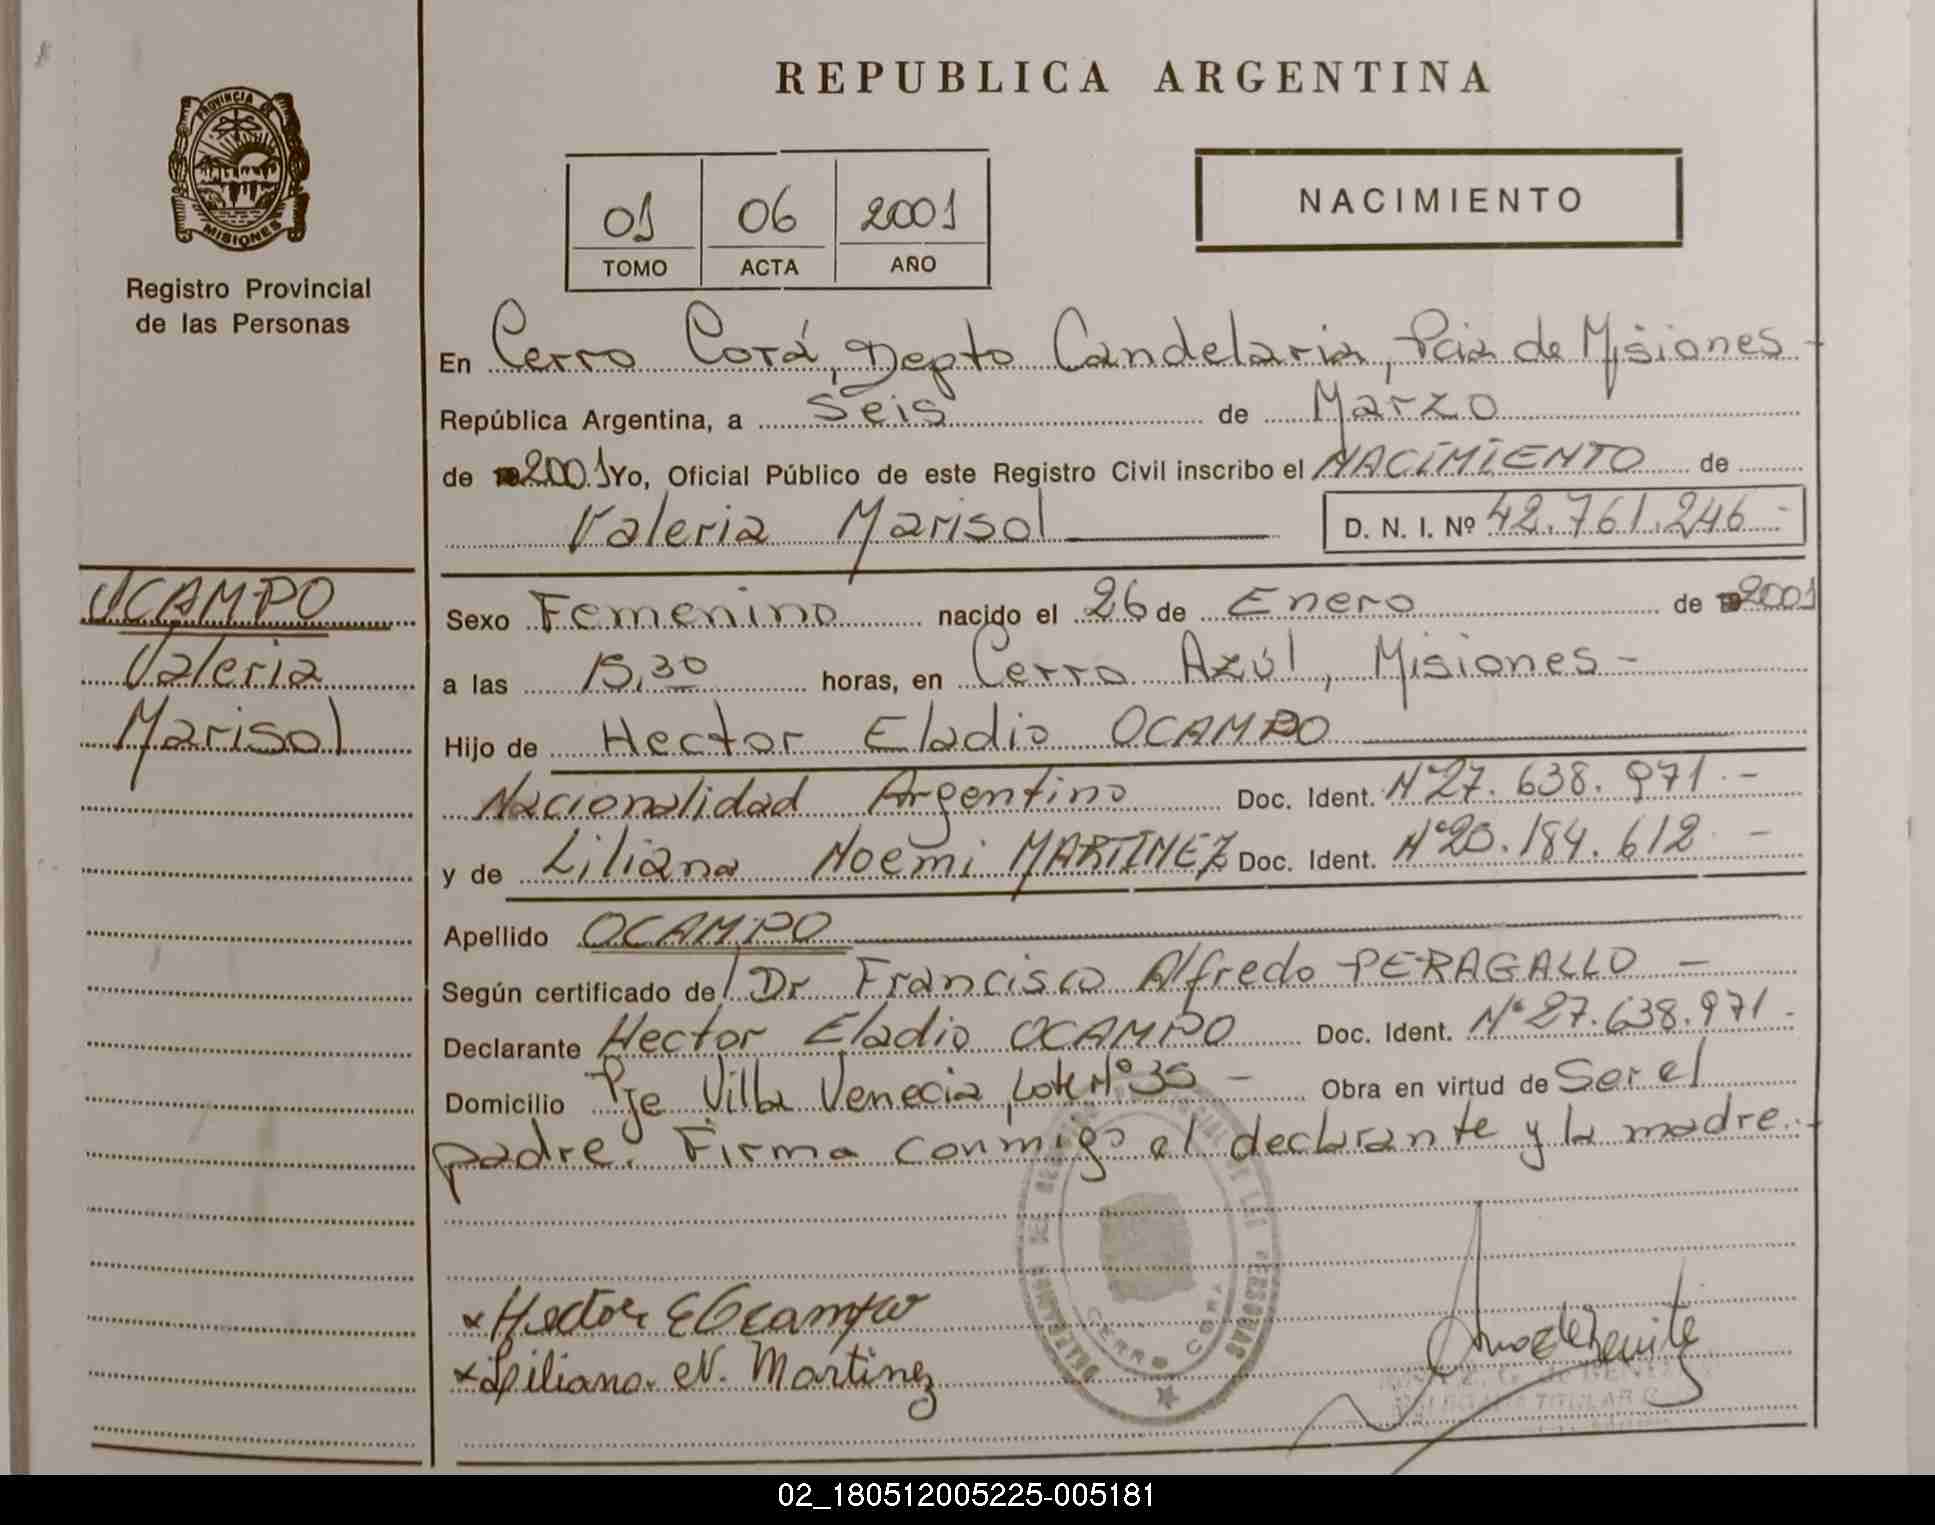 REPUBLICA ARGENTINA
PROVINCIA DE
MISIONES
Registro Provincial
de las Personas
01 06 2001
TOMO ACTA AÑO
NACIMIENTO
En Cerro Corá, Depto Candelaria, Pcia de Misiones -
República Argentina, a Seis de Marzo
de 2001 Yo, Oficial Público de este Registro Civil inscribo el NACIMIENTO de
Valeria Marisol D. N. I. Nº 42.761.246 -
OCAMPO
Valeria
Marisol
Sexo Femenino nacido el 26 de Enero de 2001
a las 15,30 horas, en Cerro Azúl, Misiones -
Hijo de Hector Eladio OCAMPO
Nacionalidad Argentino Doc. Ident. Nº 27.638.971. -
y de Liliana Noemi MARTINEZ Doc. Ident. Nº 20.184.612. -
Apellido OCAMPO
Según certificado de/ Dr Francisco Alfredo PERAGALLO -
Declarante Hector Eladio OCAMPO Doc. Ident. Nº 27.638.971 -
Domicilio Pje Villa Venecia, Lote Nº 35 - Obra en virtud de Ser el
padre. Firma conmigo el declarante y la madre. -
x Hector E Ocampo
x Liliana. N. Martinez
CERRO CORA
DE LAS PERSONAS
DELEGADA TITULAR
02_180512005225-005181